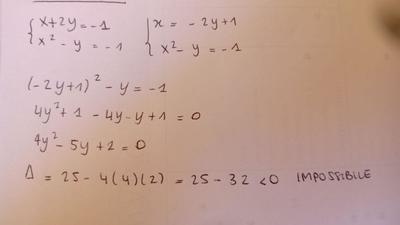 { x + 2y = -1 { x = -2y+1
{ x² - y = -1 { x² - y = -1
(-2y+1)² - y = -1
4y² + 1 - 4y - y + 1 = 0
4y² - 5y + 2 = 0
Δ = 25 - 4(4)(2) = 25 - 32 < 0 IMPOSSIBILE